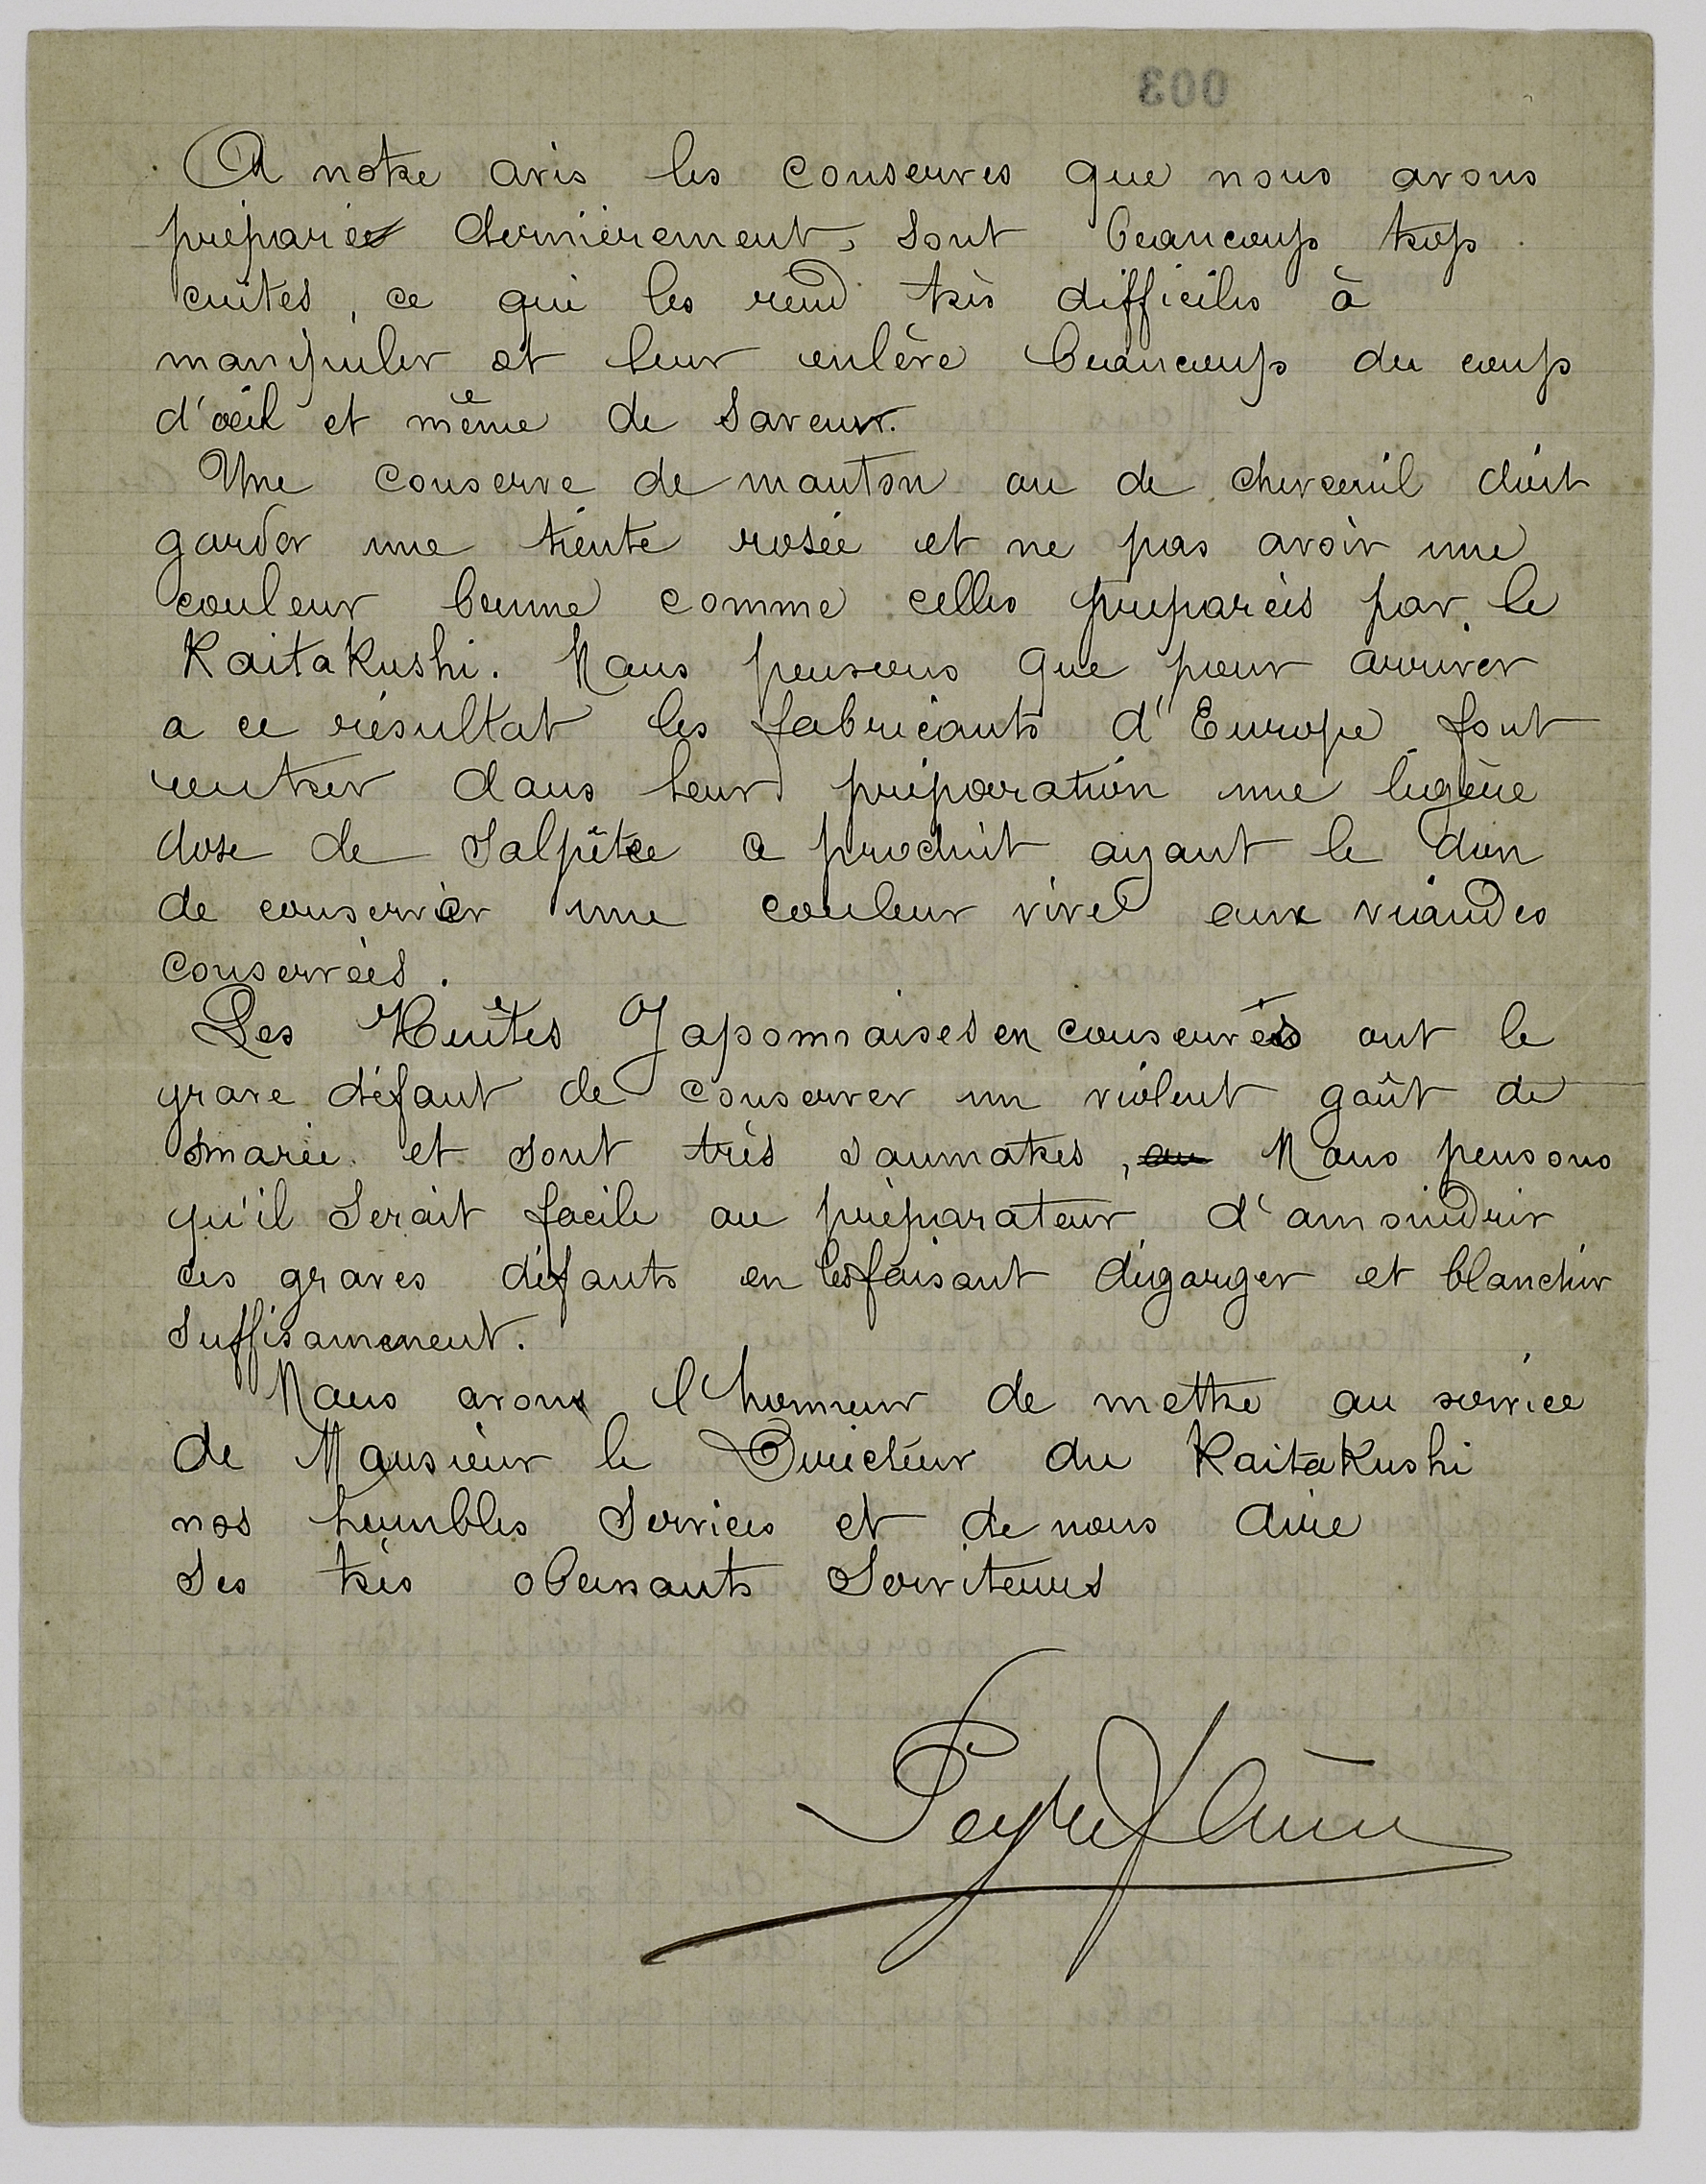 003
A notre avis les conserves que nous avons
préparées dernièrement, sont beaucoup trop
cuites, ce qui les rend très difficiles à
manipuler et leur enlève beaucoup du coup
d'œil et même de saveur.
Une conserve de mouton ou de chevreuil doit
garder une tiente rosée et ne pas avoir une
couleur brune comme celles preparées par le
Kaitakushi. Nous pensons que pour arriver
a ce résultat les fabricants d'Europe font
rentrer dans leur préparation une légère
dose de Salpêtre ce produit ayant le don
de conserver une couleur vive aux viandes
conservées.
Les Huîtes Japonnaises en conserves ont le
grave défaut de conserver un violent goût de
marée et sont très saumatres, au Nous pensons
qu'il serait facile au préparateur d'amoindrir
ces graves défauts en les faisant dégorger et blanchir
suffisamment.
Nous avons l'honneur de mettre au service
de Monsieur le Directeur du Kaitakushi
nos humbles services et de nous dire
ses très obeissants serviteurs